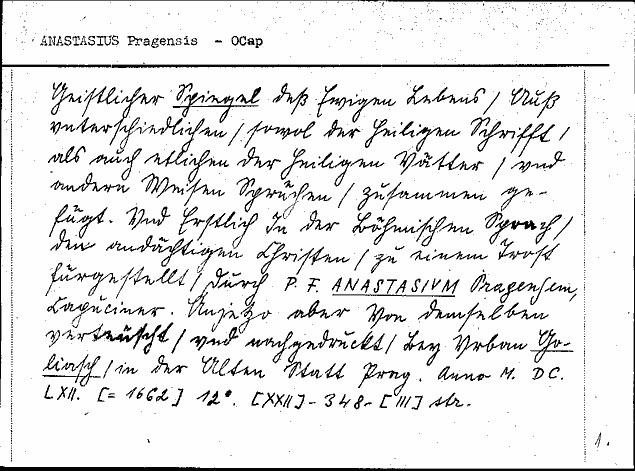 ANASTASIUS Pragensis - OCap
Geistlicher Spiegel deß Ewigen Lebens / Auß
vnterschiedlichen / sowol der Heiligen Schrifft /
als auch etlichen der Heiligen Vätter / vnd
andern Weisen Sprüchen / zusammen ge-
fügt. Vnd Erstlich In der Böhmischen Sprach /
den andächtigen Christen / zu einem Trost
fürgestellt / durch P. F. ANASTASIVM Pragensem,
Capuciner. Anjetzo aber Von demselben
verteutscht / vnd nachgedruckt / Bey Vrban Go-
liasch / in der Alten Statt Prag. Anno M. DC.
LXII. [= 1662] 12°. [XXII] - 348 - [III] str.
1.